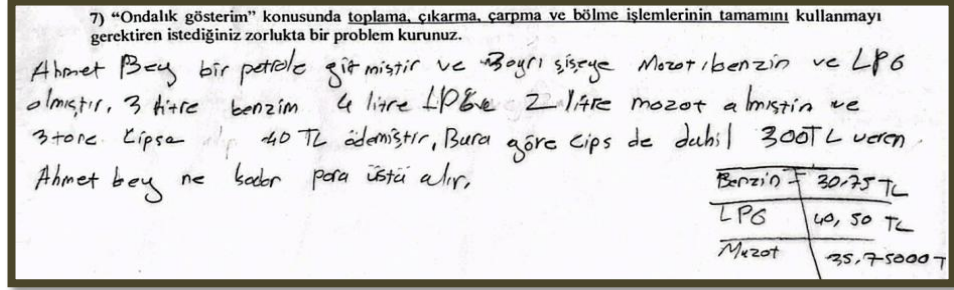 7) “Ondalık gösterim” konusunda toplama, çıkarma, çarpma ve bölme işlemlerinin tamamını kullanmayı
gerektiren istediğiniz zorlukta bir problem kurunuz.
Ahmet Bey bir petrole gitmiştir ve 3 ayrı şişeye Mozot, benzin ve LPG
almıştır, 3 litre benzim 4 litre LPG ve 2 litre mozot almıştır ve
3 tane Cipse 40 TL ödemiştir, Buna göre cips de dahil 300 TL veren
Ahmet bey ne kadar para üstü alır,
Benzin = 30,75 TL
LPG 40,50 TL
Mazot 35,75000 T